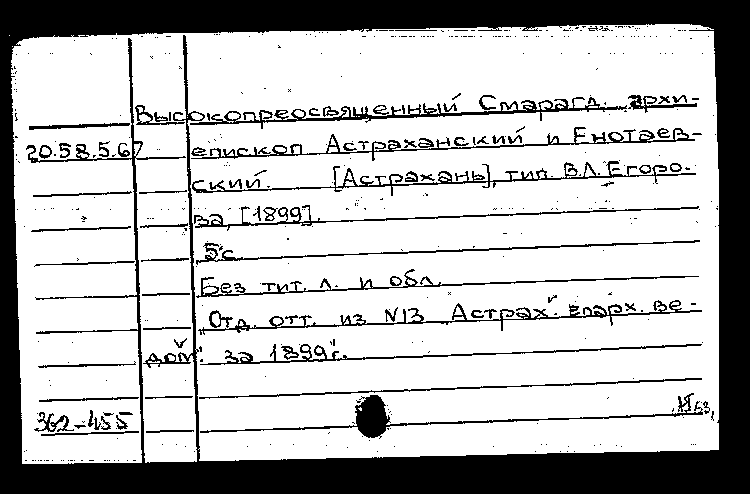 Высокопреосвященный Смарагд, архи-
20.58.5.67 епископ Астраханский и Енотаев-
ский. [Астрахань], тип. В.Л. Егоро-
ва, [1899].
5 с.
Без тит. л. и обл.
"Отд. отт. из №13 Астрах. епарх. ве-
дом. за 1899 г."
362-455